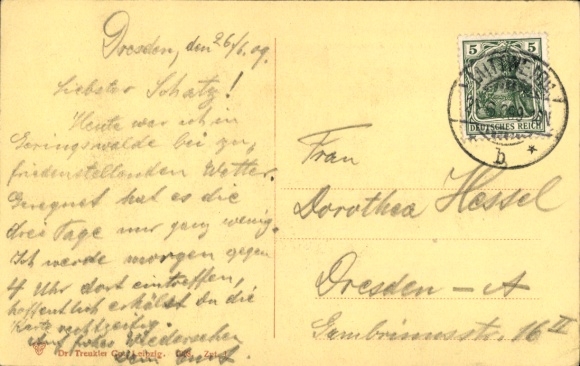 Dresden, den 26/6.09.
Liebster Schatz!
Heute war ich in
Geringswalde bei zu-
friedenstellenden Wetter.
Geregnet hat es die
drei Tage nur ganz wenig.
Ich werde morgen gegen
4 Uhr dort eintreffen,
hoffentlich erhälst du die
Karte rechtzeitig.
Auf frohes Wiedersehen
Dein
Dr. Trenkler Co., Leipzig.
5 5
DEUTSCHES REICH
MITTWEIDA
b *
Frau
Dorothea Hessel
Dresden-A
Gambrinusstr. 16 II